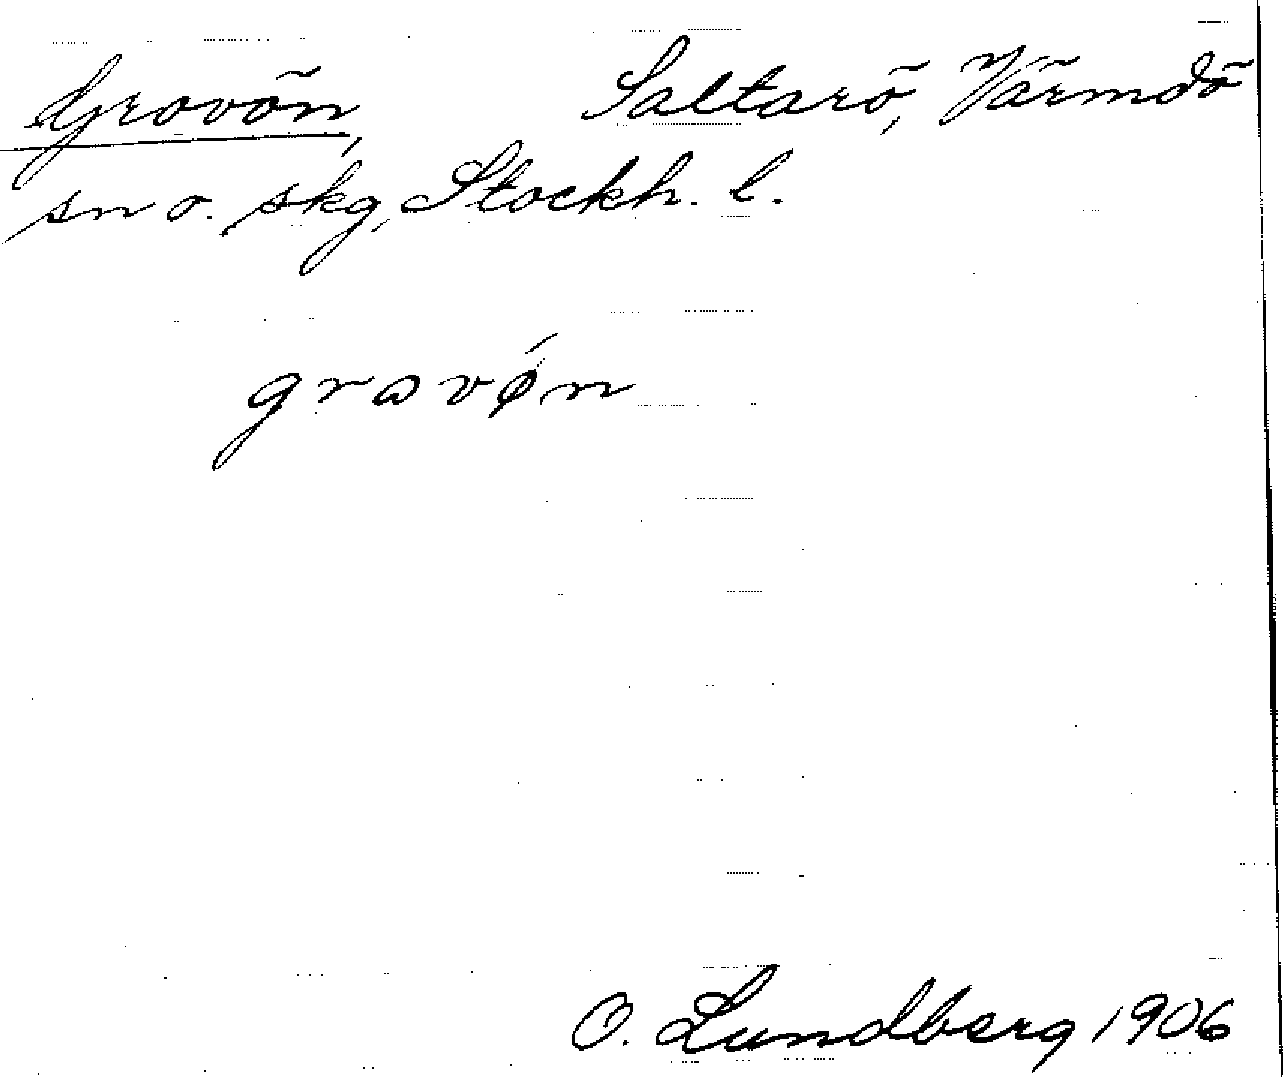 Grovön, Saltarö, Värmdö
sn o. skg, Stockh. l.
grovǿn
O. Lundberg 1906